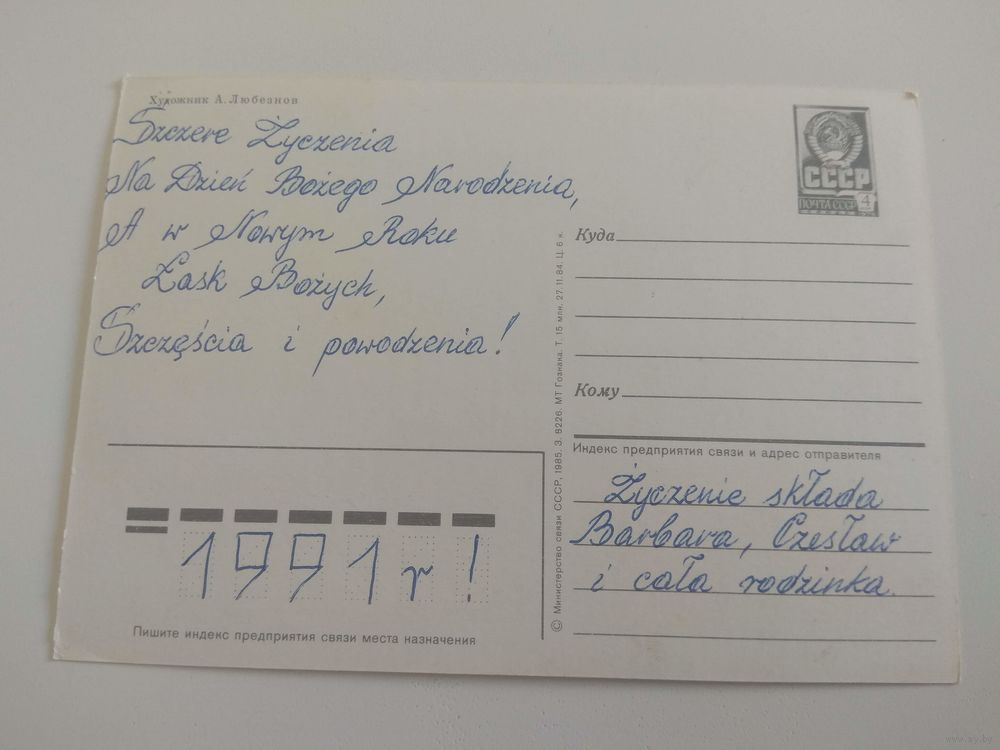 Художник А. Любезнов
Szczere Życzenia
Na Dzień Bożego Narodzenia,
A w Nowym Roku
Łask Bożych,
Szczęścia i powodzenia!
1991 r!
Пишите индекс предприятия связи места назначения
© Министерство связи СССР, 1985. З. 8226. МТ Гознака. Т. 15 млн. 27.11.84. Ц. 6 к.
СССР
ПОЧТА СССР 4
Куда
Кому
Индекс предприятия связи и адрес отправителя
Życzenie składa
Barbara, Czesław
i cała rodzinka.
www.ay.by